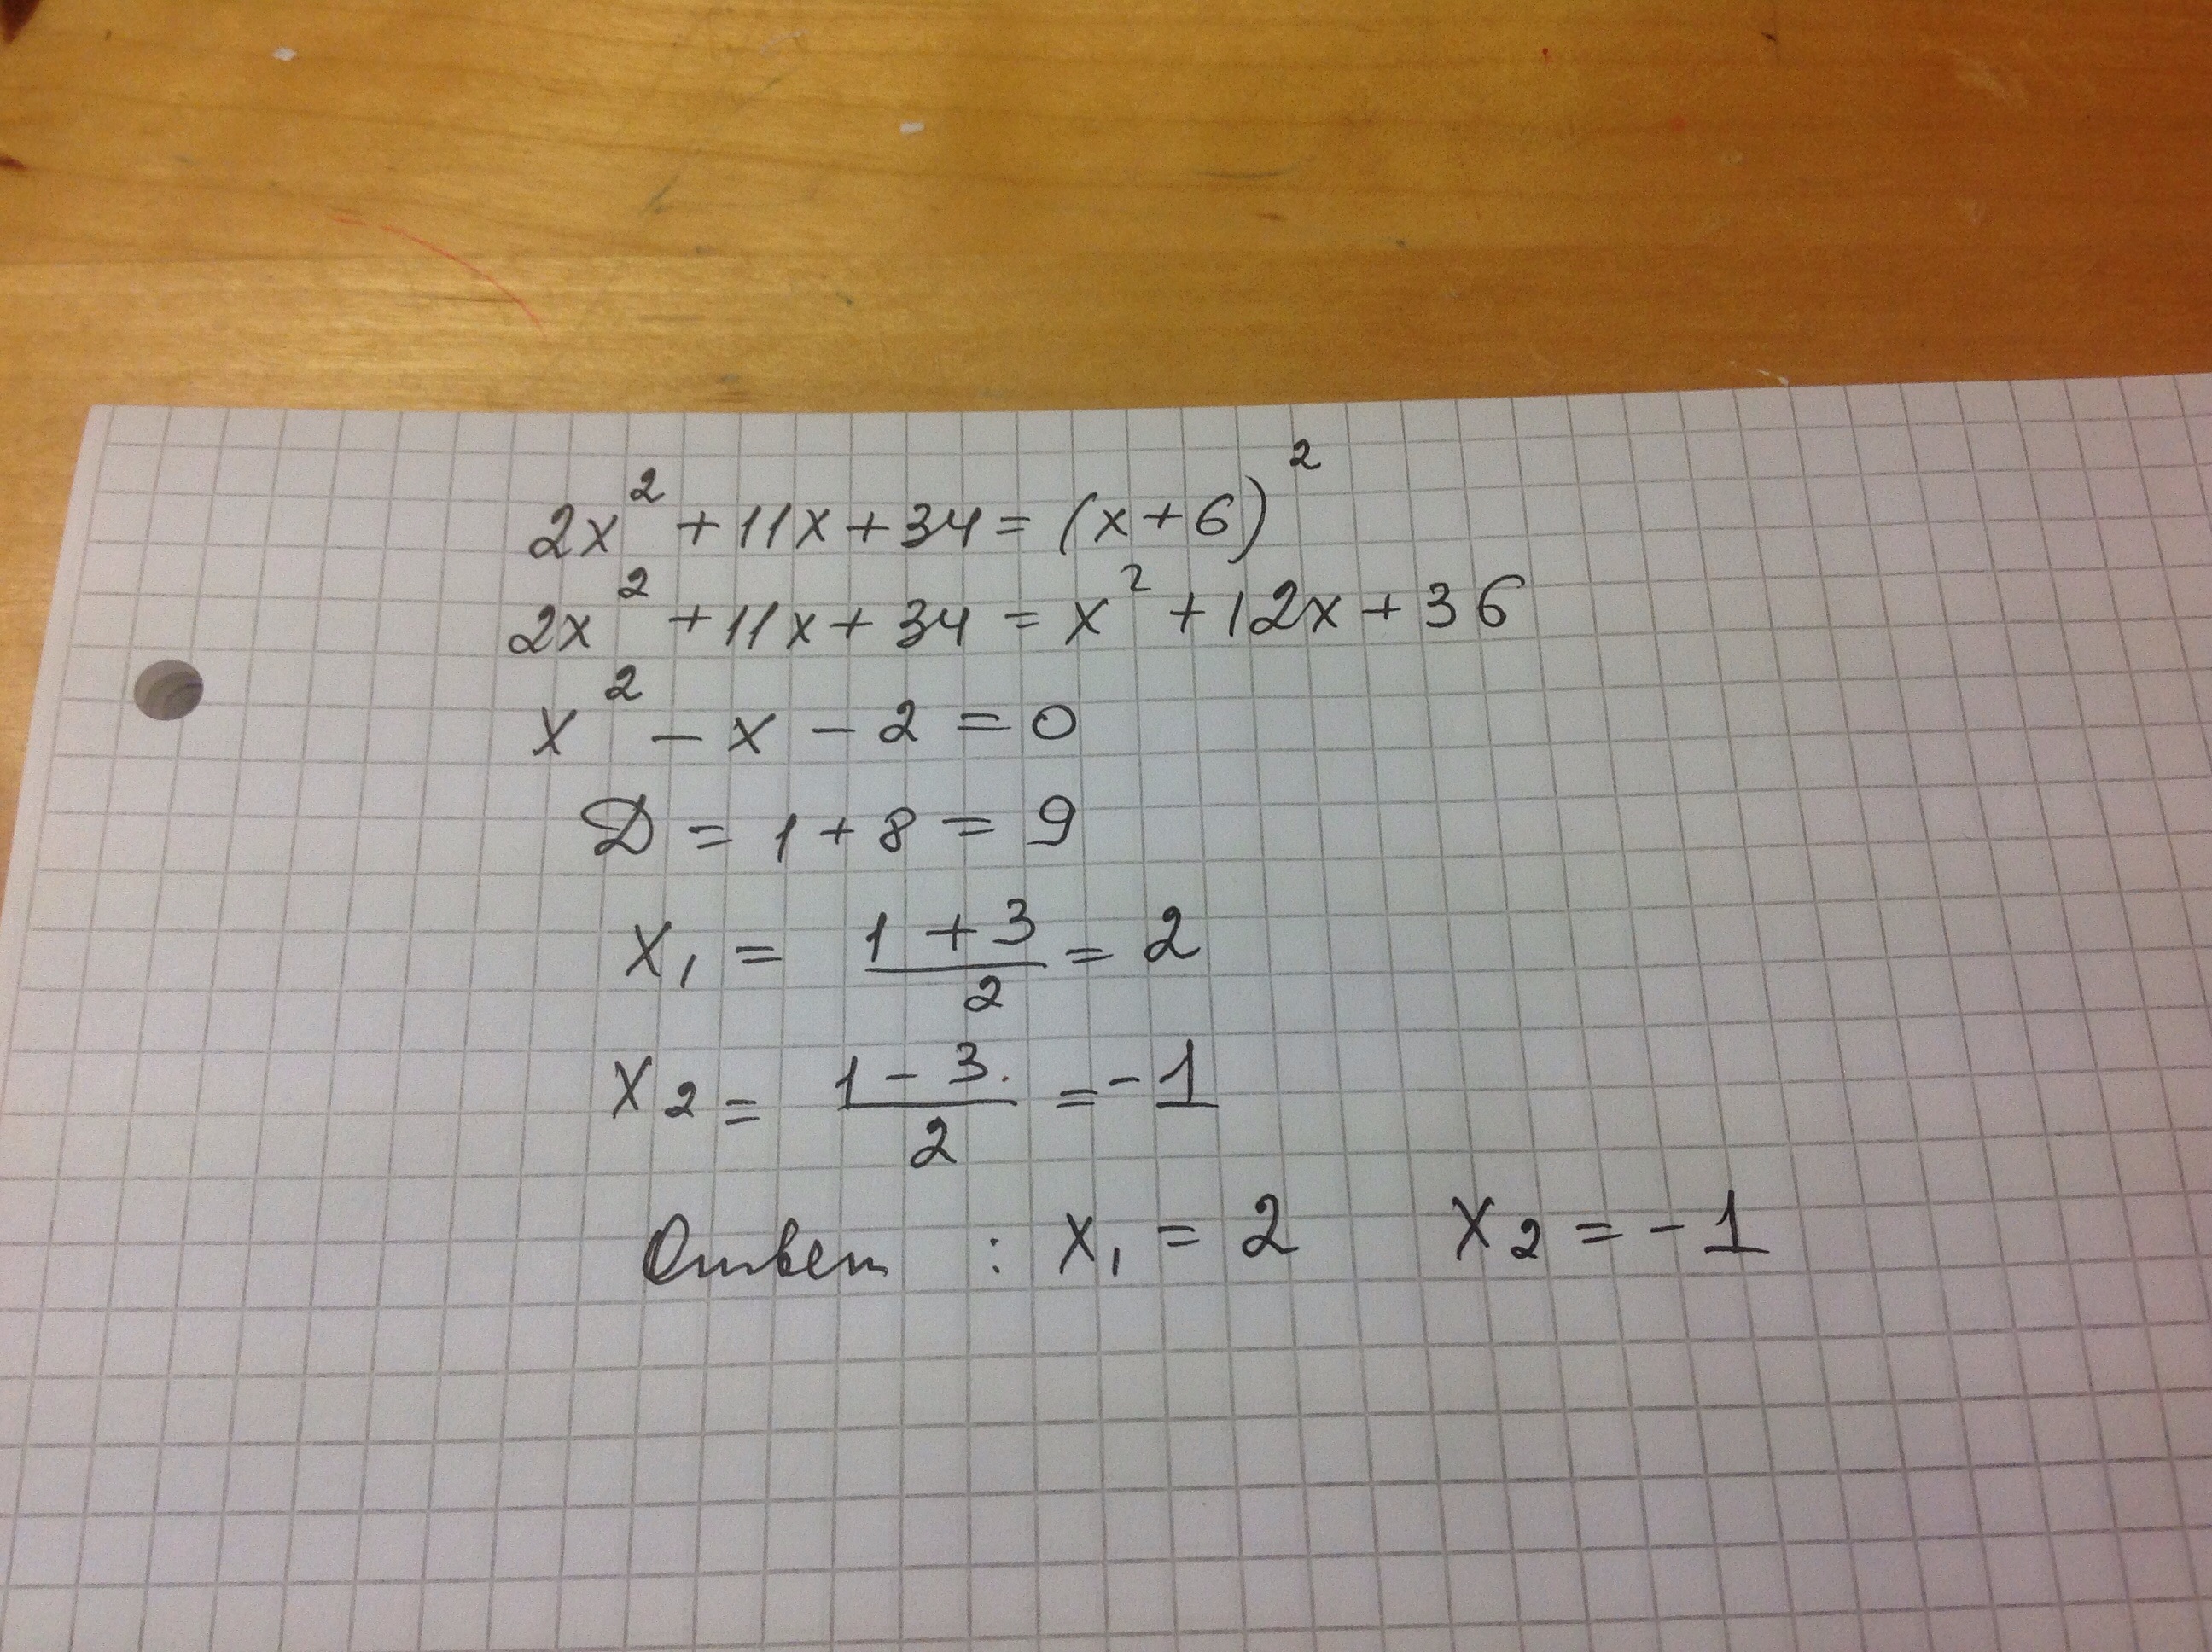 2x² + 11x + 34 = (x + 6)²
2x² + 11x + 34 = x² + 12x + 36
x² - x - 2 = 0
D = 1 + 8 = 9
x₁ = (1 + 3)/2 = 2
x₂ = (1 - 3)/2 = -1
Ответ : x₁ = 2 x₂ = -1